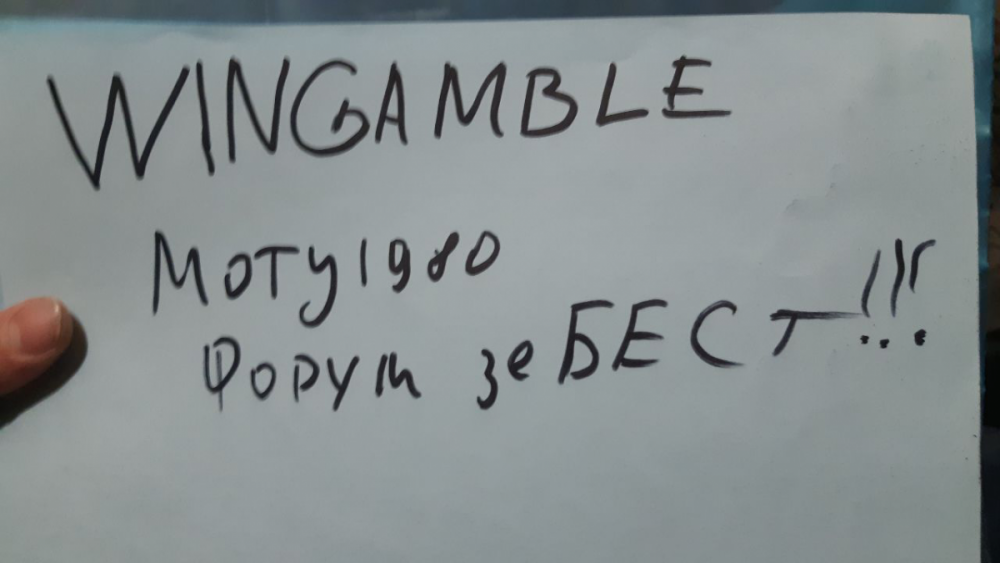 WINGAMBLE
Моту1980
Форум зе БЕСТ!!!